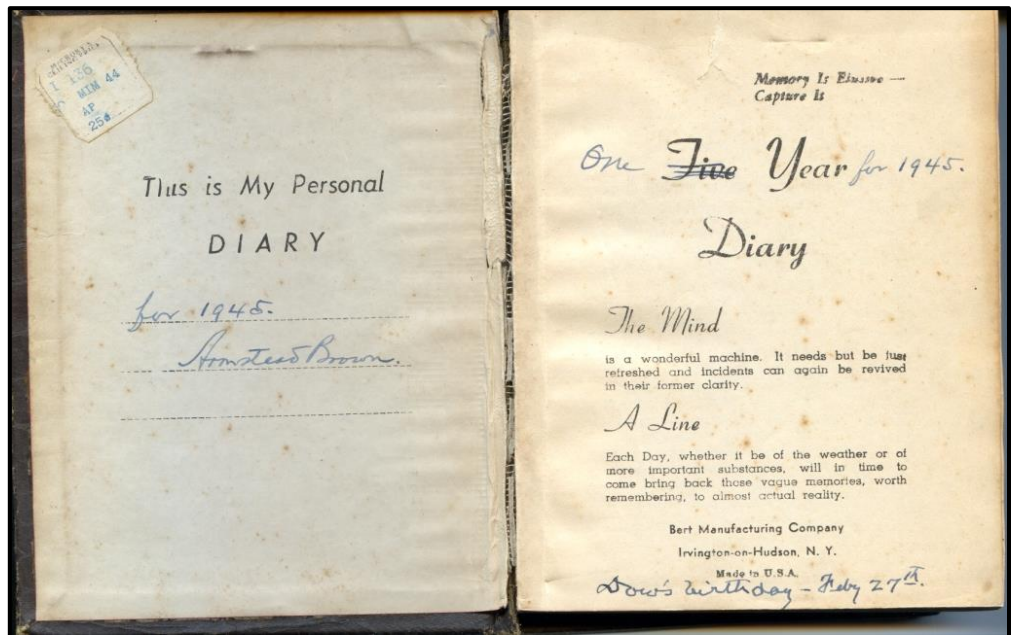 I 136
MIM 44
AP
25¢
This is My Personal
DIARY
for 1945.
Armstead Brown.
Memory Is Elusive —
Capture Is
One Five Year for 1945.
Diary
The Mind
is a wonderful machine. It needs but be just
refreshed and incidents can again be revived
in their former clarity.
A Line
Each Day, whether it be of the weather or of
more important substances, will in time to
come bring back those vague memories, worth
remembering, to almost actual reality.
Bert Manufacturing Company
Irvington-on-Hudson, N. Y.
Made in U.S.A.
Dow's birthday - Feby 27th.